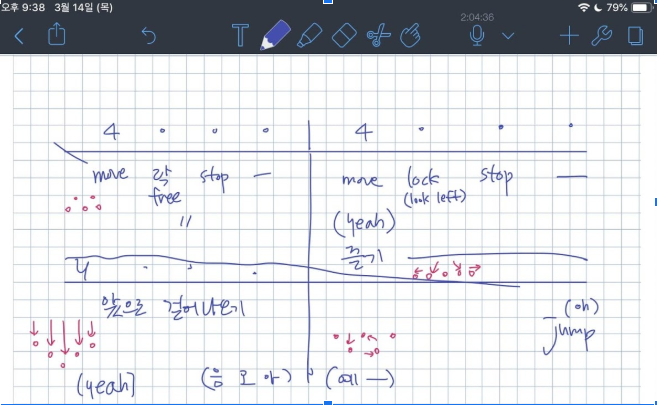 오후 9:38 3월 14일 (목) 79%
2:04:36
4 . . . 4 . . .
move 락 stop — move lock stop —
free (look left)
〃 (yeah)
4 . . .
앞으로 걸어나오기 (oh)
jump
(yeah) (음 오 아) (예 —)